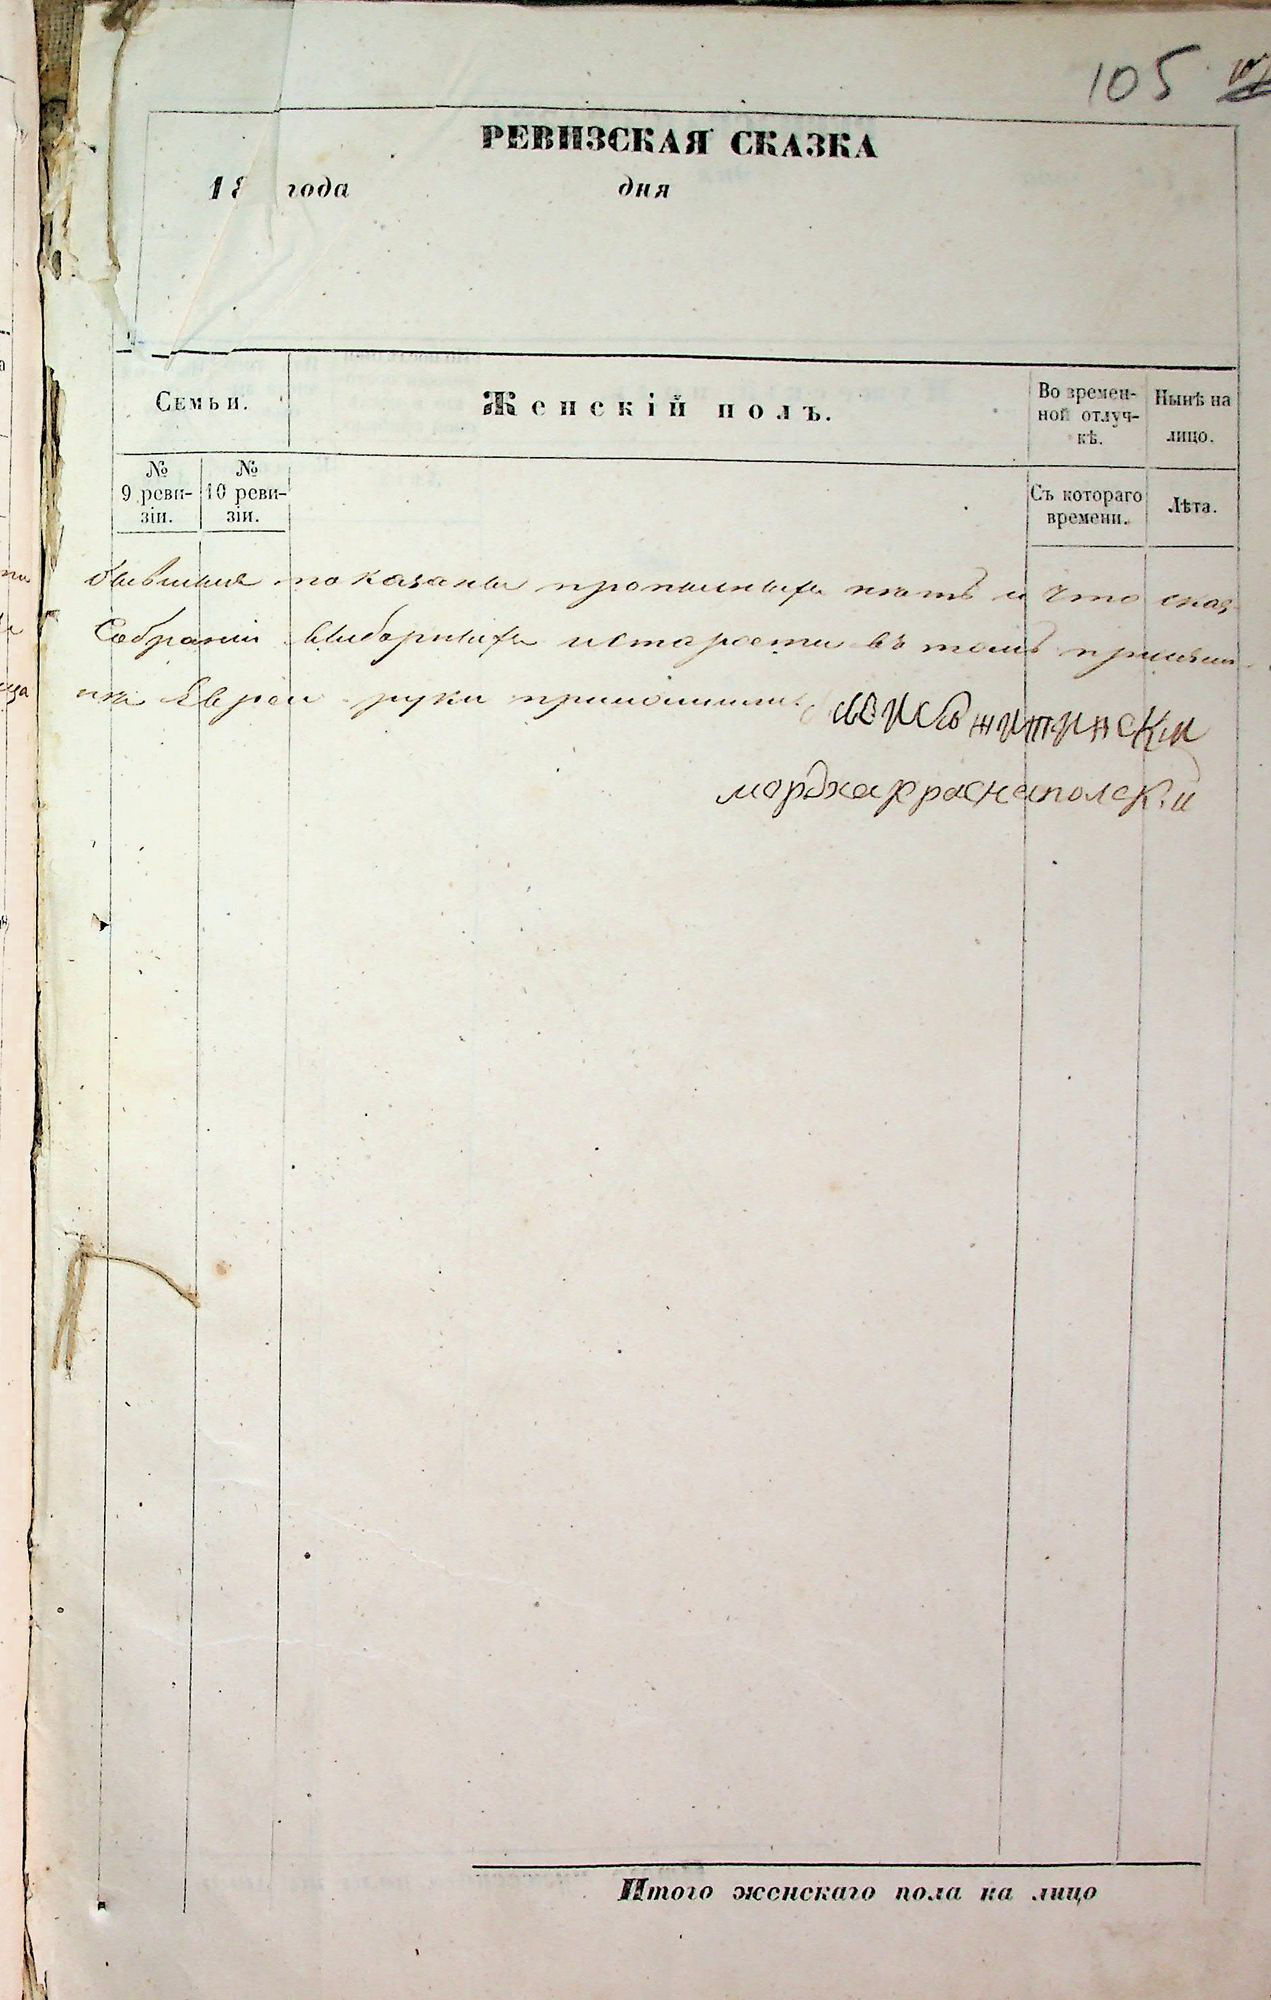 105
РЕВИЗСКАЯ СКАЗКА
18 года дня
Семьи.
Женскій полъ.
Во времен-
ной отлуч-
кѣ.
Нынѣ на
лицо.
№
9 реви-
зіи.
№
10 реви-
зіи.
Съ котораго
времени.
Лѣта.
показаны нѣтъ и что
Собраніи выборныхъ и старосты въ томъ
Евреи руки приложили
Мордхе Краснапольскій
Итого женскаго пола на лицо